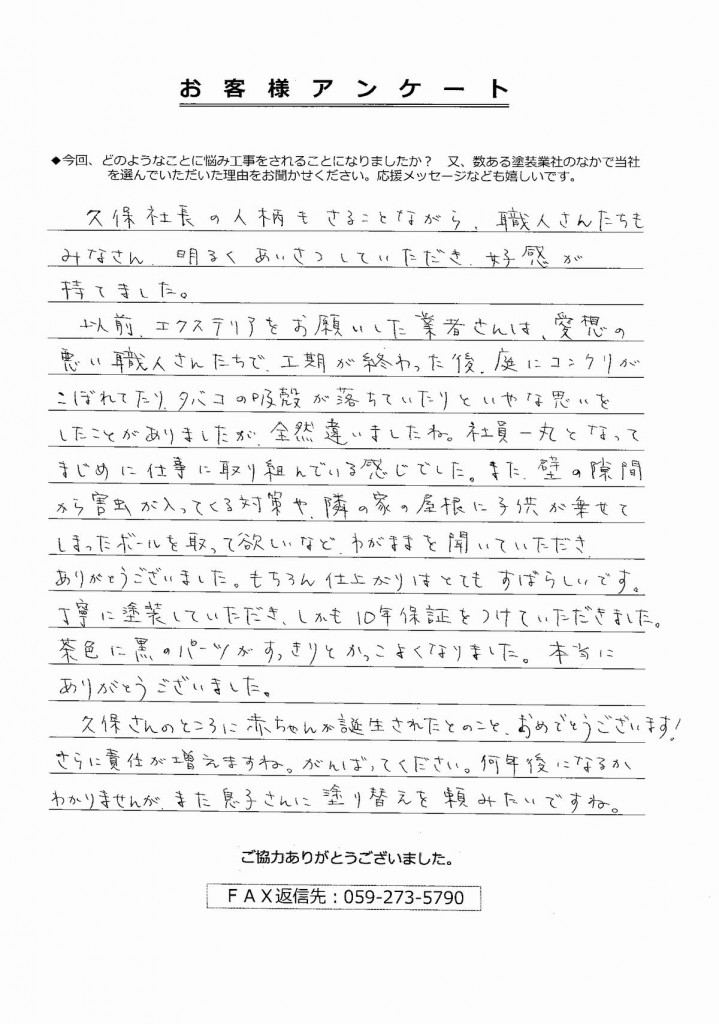 お客様アンケート
◆今回、どのようなことに悩み工事をされることになりましたか？　又、数ある塗装業社のなかで当社
を選んでいただいた理由をお聞かせください。応援メッセージなども嬉しいです。
久保社長の人柄もさることながら、職人さんたちも
みなさん、明るくあいさつしていただき、好感が
持てました。
以前、エクステリアをお願いした業者さんは、愛想の
悪い職人さんたちで、工期が終わった後、庭にコンクリが
こぼれてたり、タバコの吸殻が落ちていたりといやな思いを
したことがありましたが、全然違いましたね。社員一丸となって
まじめに仕事に取り組んでいる感じでした。また、壁の隙間
から害虫が入ってくる対策や、隣の家の屋根に子供が乗せて
しまったボールを取って欲しいなど、わがままを聞いていただき
ありがとうございました。もちろん仕上がりはとてもすばらしいです。
丁寧に塗装していただき、しかも10年保証をつけていただきました。
茶色に黒のパーツがすっきりとかっこよくなりました。本当に
ありがとうございました。
久保さんのところに赤ちゃんが誕生されたとのこと、おめでとうございます!
さらに責任が増えますね。がんばってください。何年後になるか
わかりませんが、また息子さんに塗り替えを頼みたいですね。
ご協力ありがとうございました。
ＦＡＸ返信先：059-273-5790